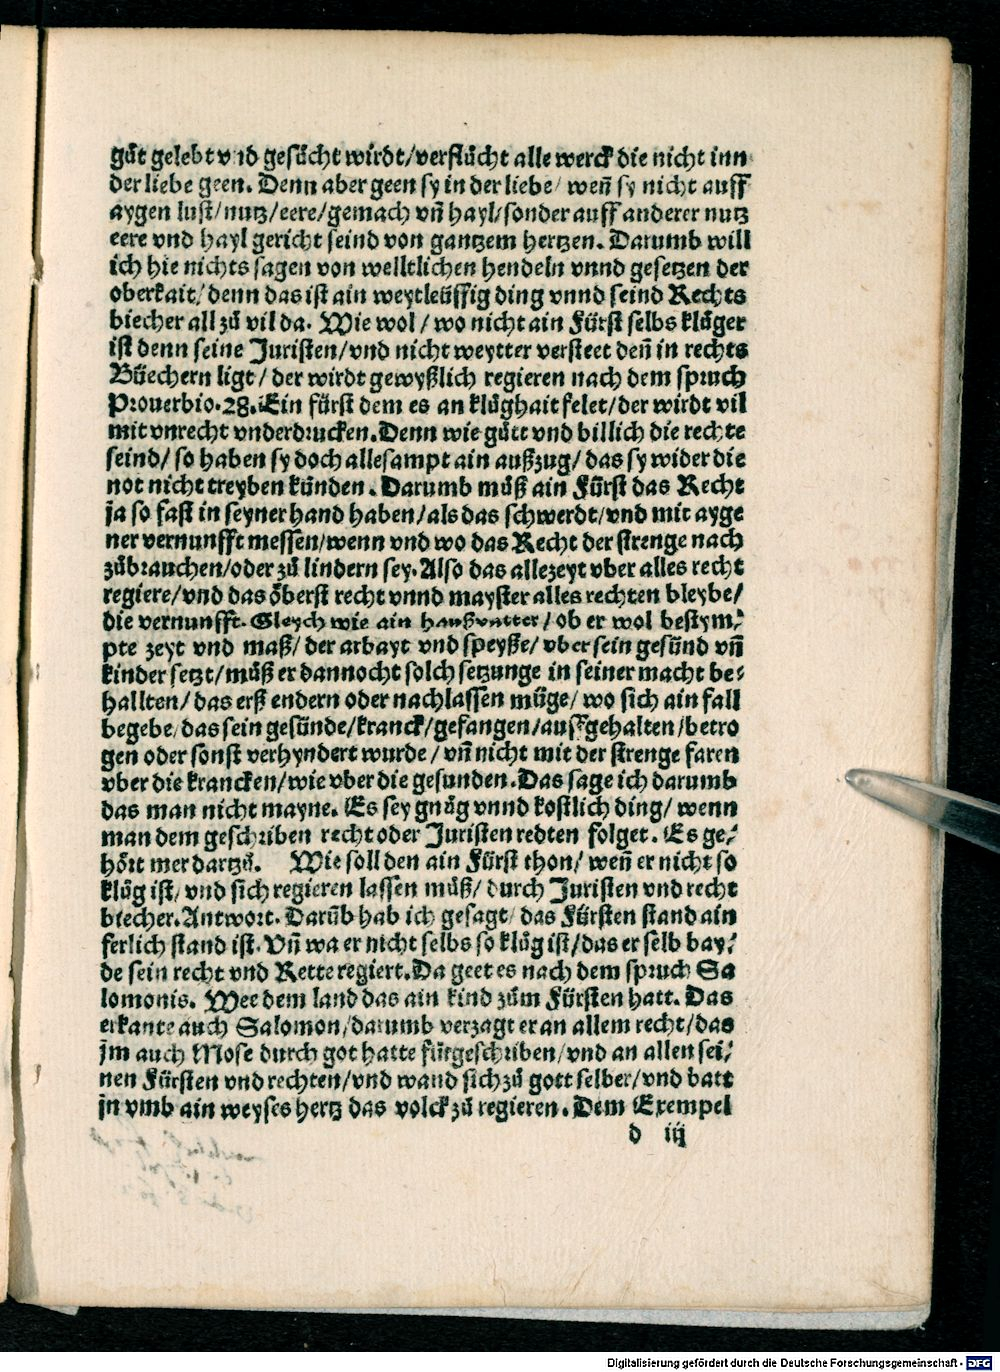 gůt gelebt vnd gesůcht wirdt/verflůcht alle werck die nicht inn
der liebe geen. Denn aber geen sy in der liebe/ weñ sy nicht auff
aygen lust/nutz/eere/gemach vñ hayl/sonder auff anderer nutz
eere vnd hayl gericht seind von gantzem hertzen. Darumb will
ich hie nichts sagen von welltlichen hendeln vnnd gesetzen der
oberkait/denn das ist ain weytleüffig ding vnnd seind Rechts
biecher all zů vil da. Wie wol/wo nicht ain Fürst selbs klůger
ist denn seine Juristen/vnd nicht weytter versteet deñ in rechts
Büechern ligt/der wirdt gewyßlich regieren nach dem spruch
Prouerbio.28. Ein fürst dem es an klůghait felet/der wirdt vil
mit vnrecht vnderdrucken. Denn wie gůtt vnd billich die rechte
seind/ so haben sy doch allesampt ain außzug/das sy wider die
not nicht treyben künden. Darumb můß ain Fürst das Recht
ja so fast in seyner hand haben/als das schwerdt/vnd mit ayge
ner vernunfft messen/wenn vnd wo das Recht der strenge nach
zůbrauchen/oder zů lindern sey. Also das allezeyt vber alles recht
regiere/vnd das öberst recht vnnd mayster alles rechten bleybe/
die vernunfft. Gleych wie ain haußvatter/ob er wol bestym⸗
pte zeyt vnd maß/der arbayt vnd speyße/vber sein gesünd vñ
kinder setzt/můß er dannocht solch setzunge in seiner macht be⸗
hallten/das erß endern oder nachlassen müge/wo sich ain fall
begebe/das sein gesünde/kranck/gefangen/auffgehalten/betro
gen oder sonst verhyndert wurde/vñ nicht mit der strenge faren
vber die krancken/wie vber die gesunden. Das sage ich darumb
das man nicht mayne. Es sey gnůg vnnd kostlich ding/wenn
man dem geschriben recht oder Juristen redten folget. Es ge⸗
hört mer dartzů. Wie soll den ain Fürst thon/weñ er nicht so
klůg ist/vnd sich regieren lassen můß/durch Juristen vnd recht
biecher. Antwort. Darüb hab ich gesagt/das Fürsten stand ain
ferlich stand ist. Vñ wa er nicht selbs so klůg ist/das er selb bay⸗
de sein recht vnd Rette regiert. Da geet es nach dem spruch Sa
lomonis. Wee dem land das ain kind zům Fürsten hatt. Das
erkante auch Salomon/darumb verzagt er an allem recht/das
jm auch Mose durch got hatte fürgeschriben/vnd an allen sei⸗
nen Fürsten vnd rechten/vnd wand sich zů gott selber/vnd batt
jn vmb ain weyses hertz das volck zů regieren. Dem Exempel
d iij
Digitalisierung gefördert durch die Deutsche Forschungsgemeinschaft - DFG